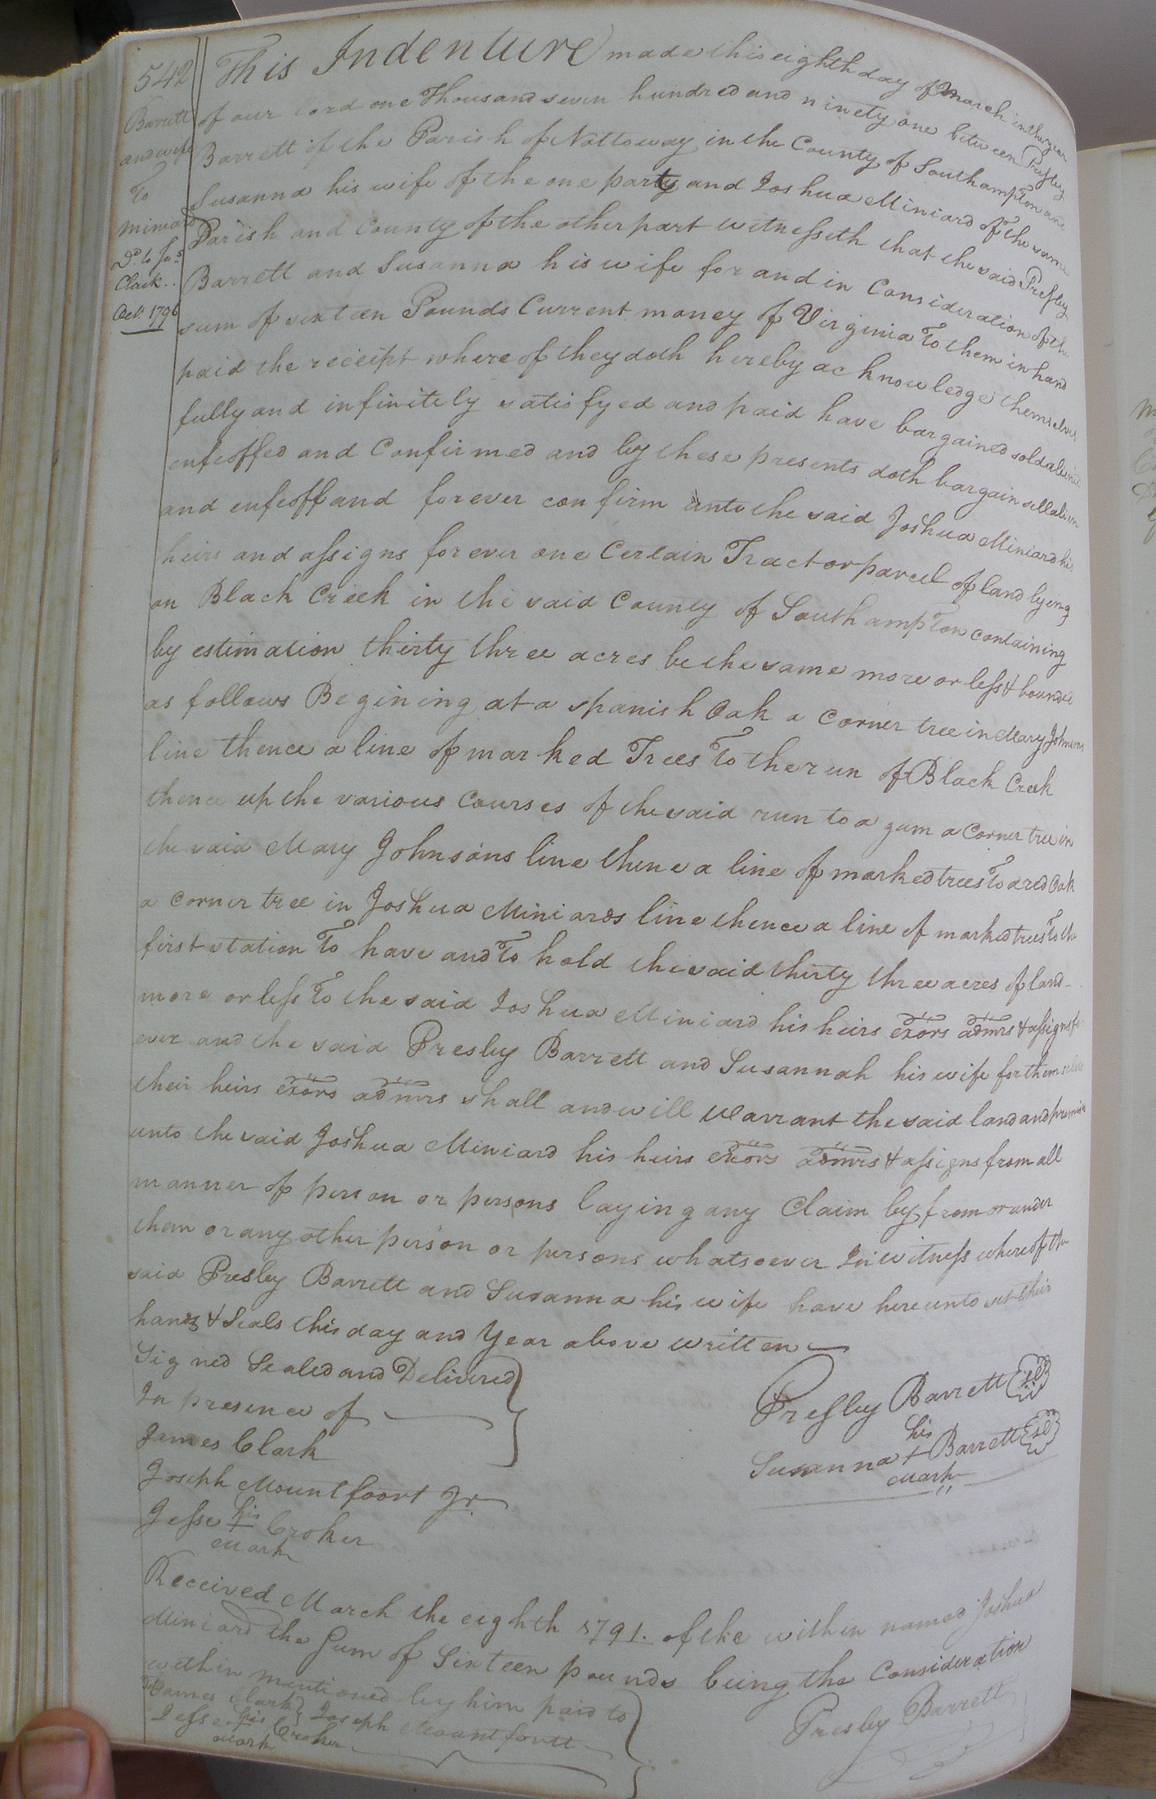 542
Barrett
and wife
To
Miniard
Dd. to Jos
Clark..
Octr. 1796
This Indenture made this eighth day of March in the year
of our Lord one Thousand seven hundred and ninety one between Presley
Barrett of the Parish of Nottoway in the County of Southampton and
Susanna his wife of the one party and Joshua Miniard of the same
Parish and County of the other part witnesseth that the said Presley
Barrett and Susanna his wife for and in Consideration of the
sum of sixteen Pounds Current money of Virginia To them in hand
paid the receipt where of they doth hereby acknowledge themselves
fully and infinitely satisfyed and paid have bargained sold
enfeoffed and Confirmed and by these presents doth bargain sell
and enfeoff and forever confirm unto the said Joshua Miniard his
heirs and assigns forever one Certain Tract or parcel of land lying
on Black Creek in the said County of Southampton containing
by estimation thirty three acres be the same more or less & bounded
as follows Begining at a spanish Oak a Corner tree in Mary Johnsons
line thence a line of marked Trees To the run of Black Creek
thence up the various Courses of the said run to a gum a Corner tree in
the said Mary Johnsons line thence a line of marked trees To a red Oak
a corner tree in Joshua Miniards line thence a line of marked trees To the
first station To have and To hold the said thirty three acres of land
more or less To the said Joshua Miniard his heirs exors admrs & assigns for
ever and the said Presley Barrett and Susannah his wife for themselves
their heirs exors admrs shall and will Warrant the said land and premises
unto the said Joshua Miniard his heirs exors admrs & assigns from all
manner of person or persons laying any Claim by from or under
them or any other person or persons whatsoever In witness whereof the
said Presley Barrett and Susanna his wife have here unto set their
hands & Seals this day and Year above written
Signed Sealed and Delivered
In presence of
James Clark
Joseph Mountfoort Jr.
Jesse his Croker
mark
Presley Barrett Seal
his
Susanna + Barrett Seal
mark
Received March the eighth 1791. of the within named Joshua
Miniard the Sum of Sixteen pounds being the Consideration
within mentioned by him paid to
James Clark Joseph Mountfortt
Jesse his Croker
mark
Presley Barrett